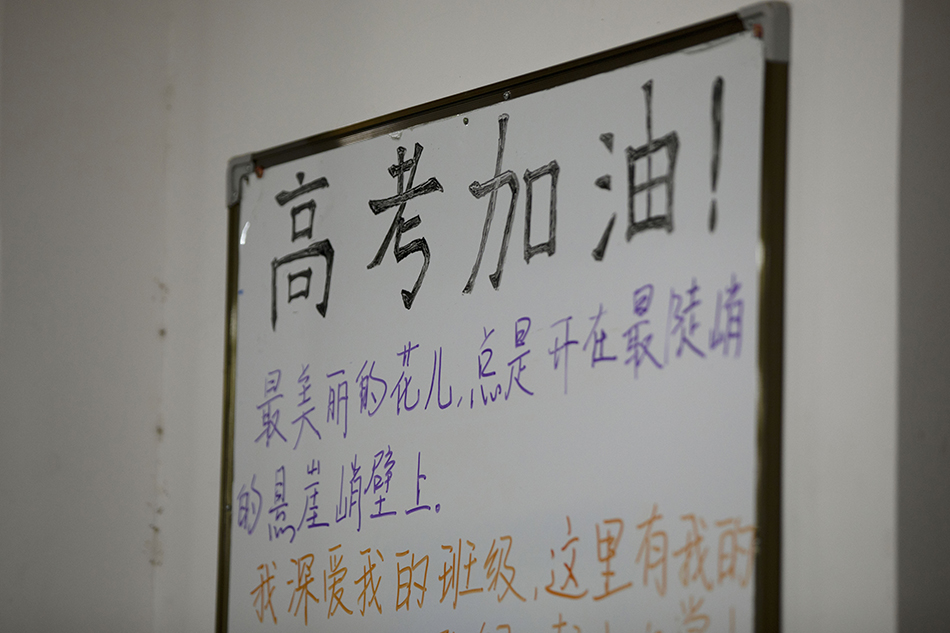 高考加油!
最美丽的花儿,总是开在最陡峭
的悬崖峭壁上。
我深爱我的班级,这里有我的